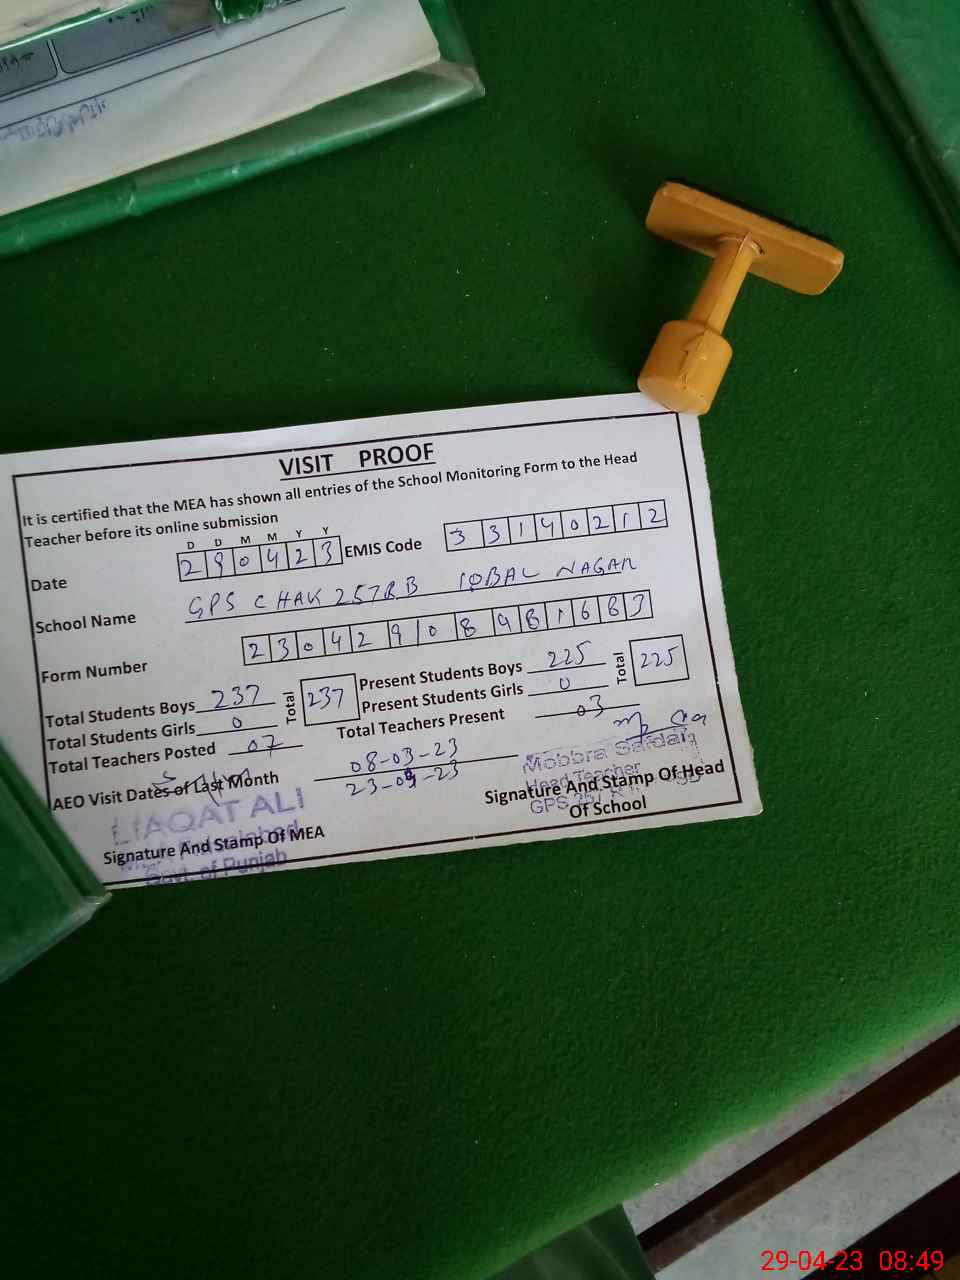 VISIT PROOF
It is certified that the MEA has shown all entries of the School Monitoring Form to the Head
Teacher before its online submission
D D M M Y Y
Date 290423 EMIS Code 33140212
School Name GPS CHAK 257RB IQBAL NAGAR
Form Number 230429108981683
Total Students Boys 237 Total 237 Present Students Boys 225 Total 225
Total Students Girls 0 Present Students Girls 0
Total Teachers Posted 07 Total Teachers Present 03
AEO Visit Dates of Last Month 08-03-23
23-03-23
LIAQAT ALI
Signature And Stamp Of MEA
Govt. of Punjab
Head Teacher
GPS 257
Signature And Stamp Of Head
Of School
29-04-23 08:49